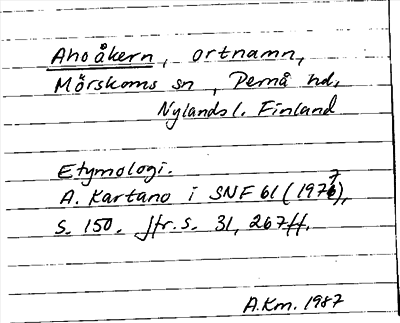 Ahoåkern, ortnamn,
Mörskoms sn, Pernå hd,
Nylands l. Finland
Etymologi.
A. Kartano i SNF 61 (1977),
s. 150. Jfr. s. 31, 267 ff.
A.Km. 1987